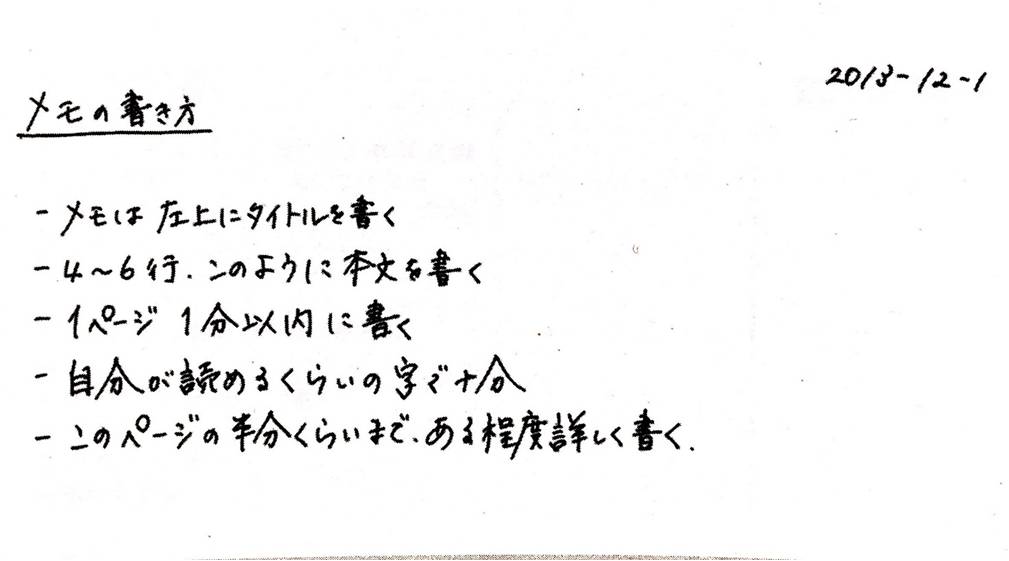 2013-12-1
メモの書き方
- メモは左上にタイトルを書く
- 4~6行、このように本文を書く
- 1ページ 1分以内に書く
- 自分が読めるくらいの字で十分
- このページの半分くらいまで、ある程度詳しく書く.